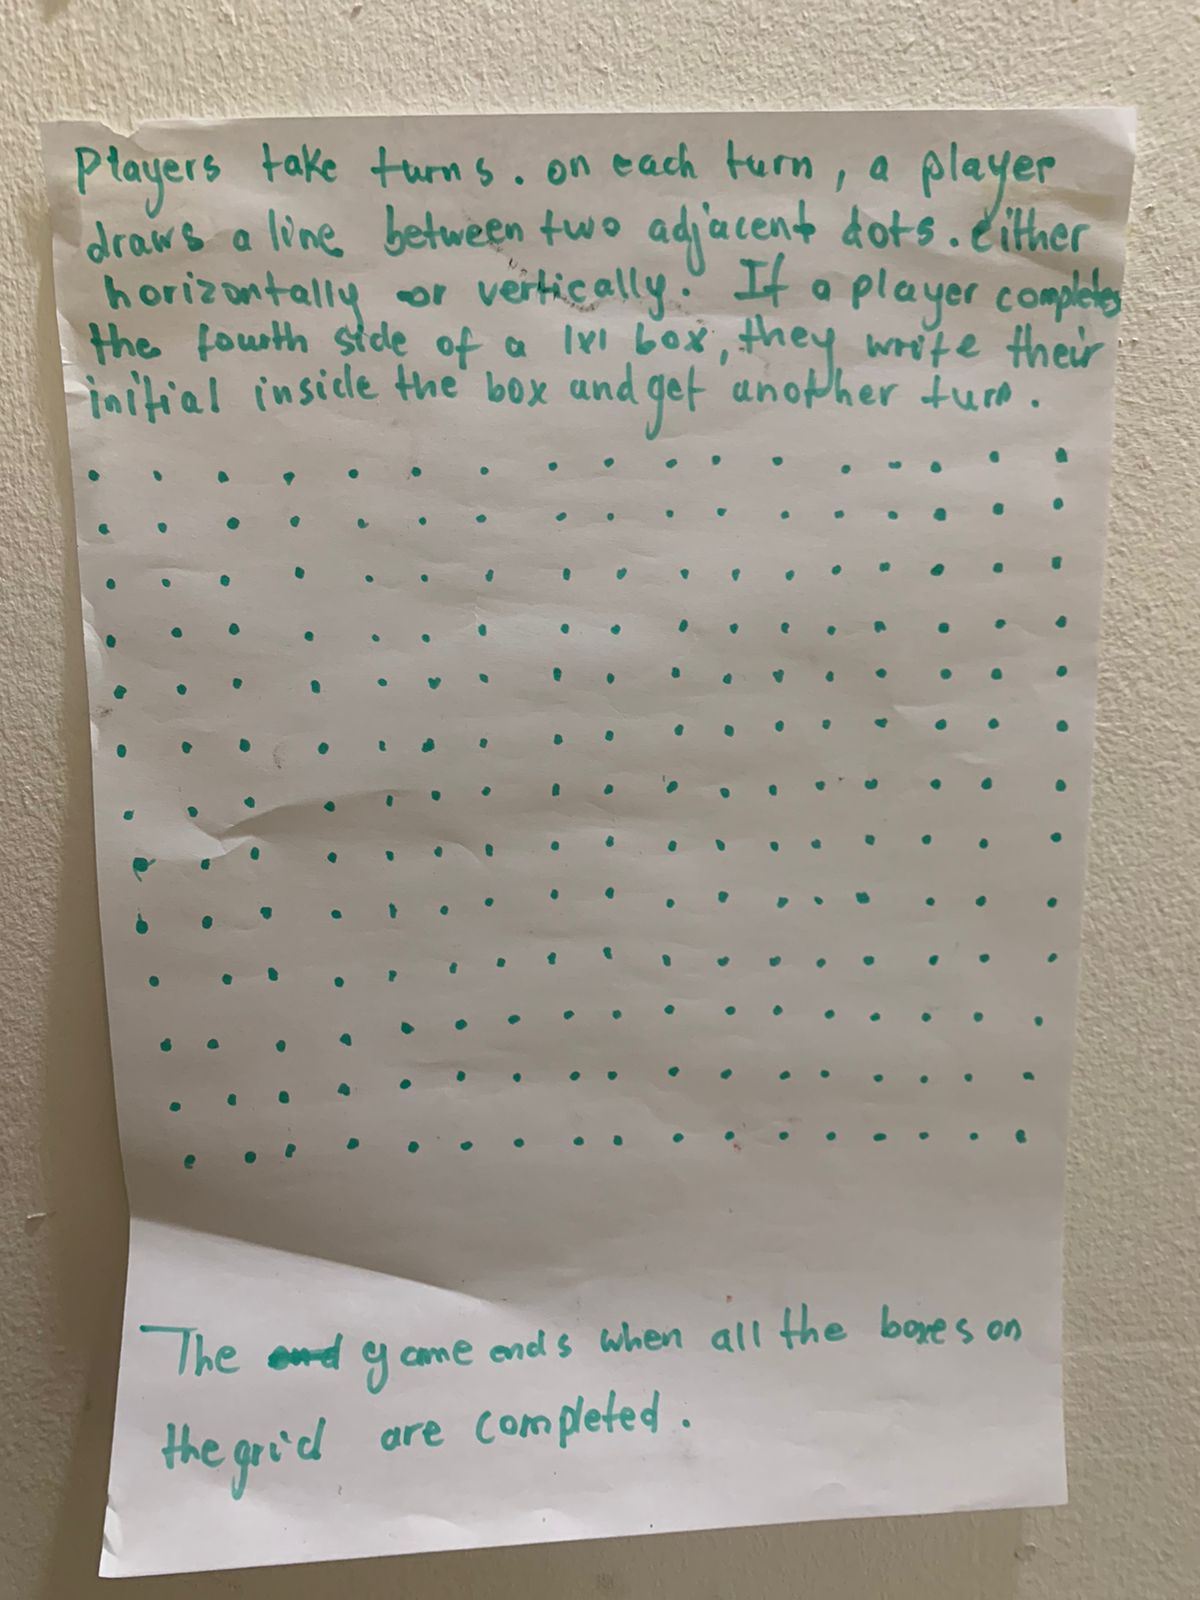 Players take turns. on each turn, a player
draws a line between two adjacent dots. either
horizontally or vertically. If a player completes
the fourth side of a 1x1 box, they write their
initial inside the box and get another turn.
The end game ends when all the boxes on
the grid are completed.